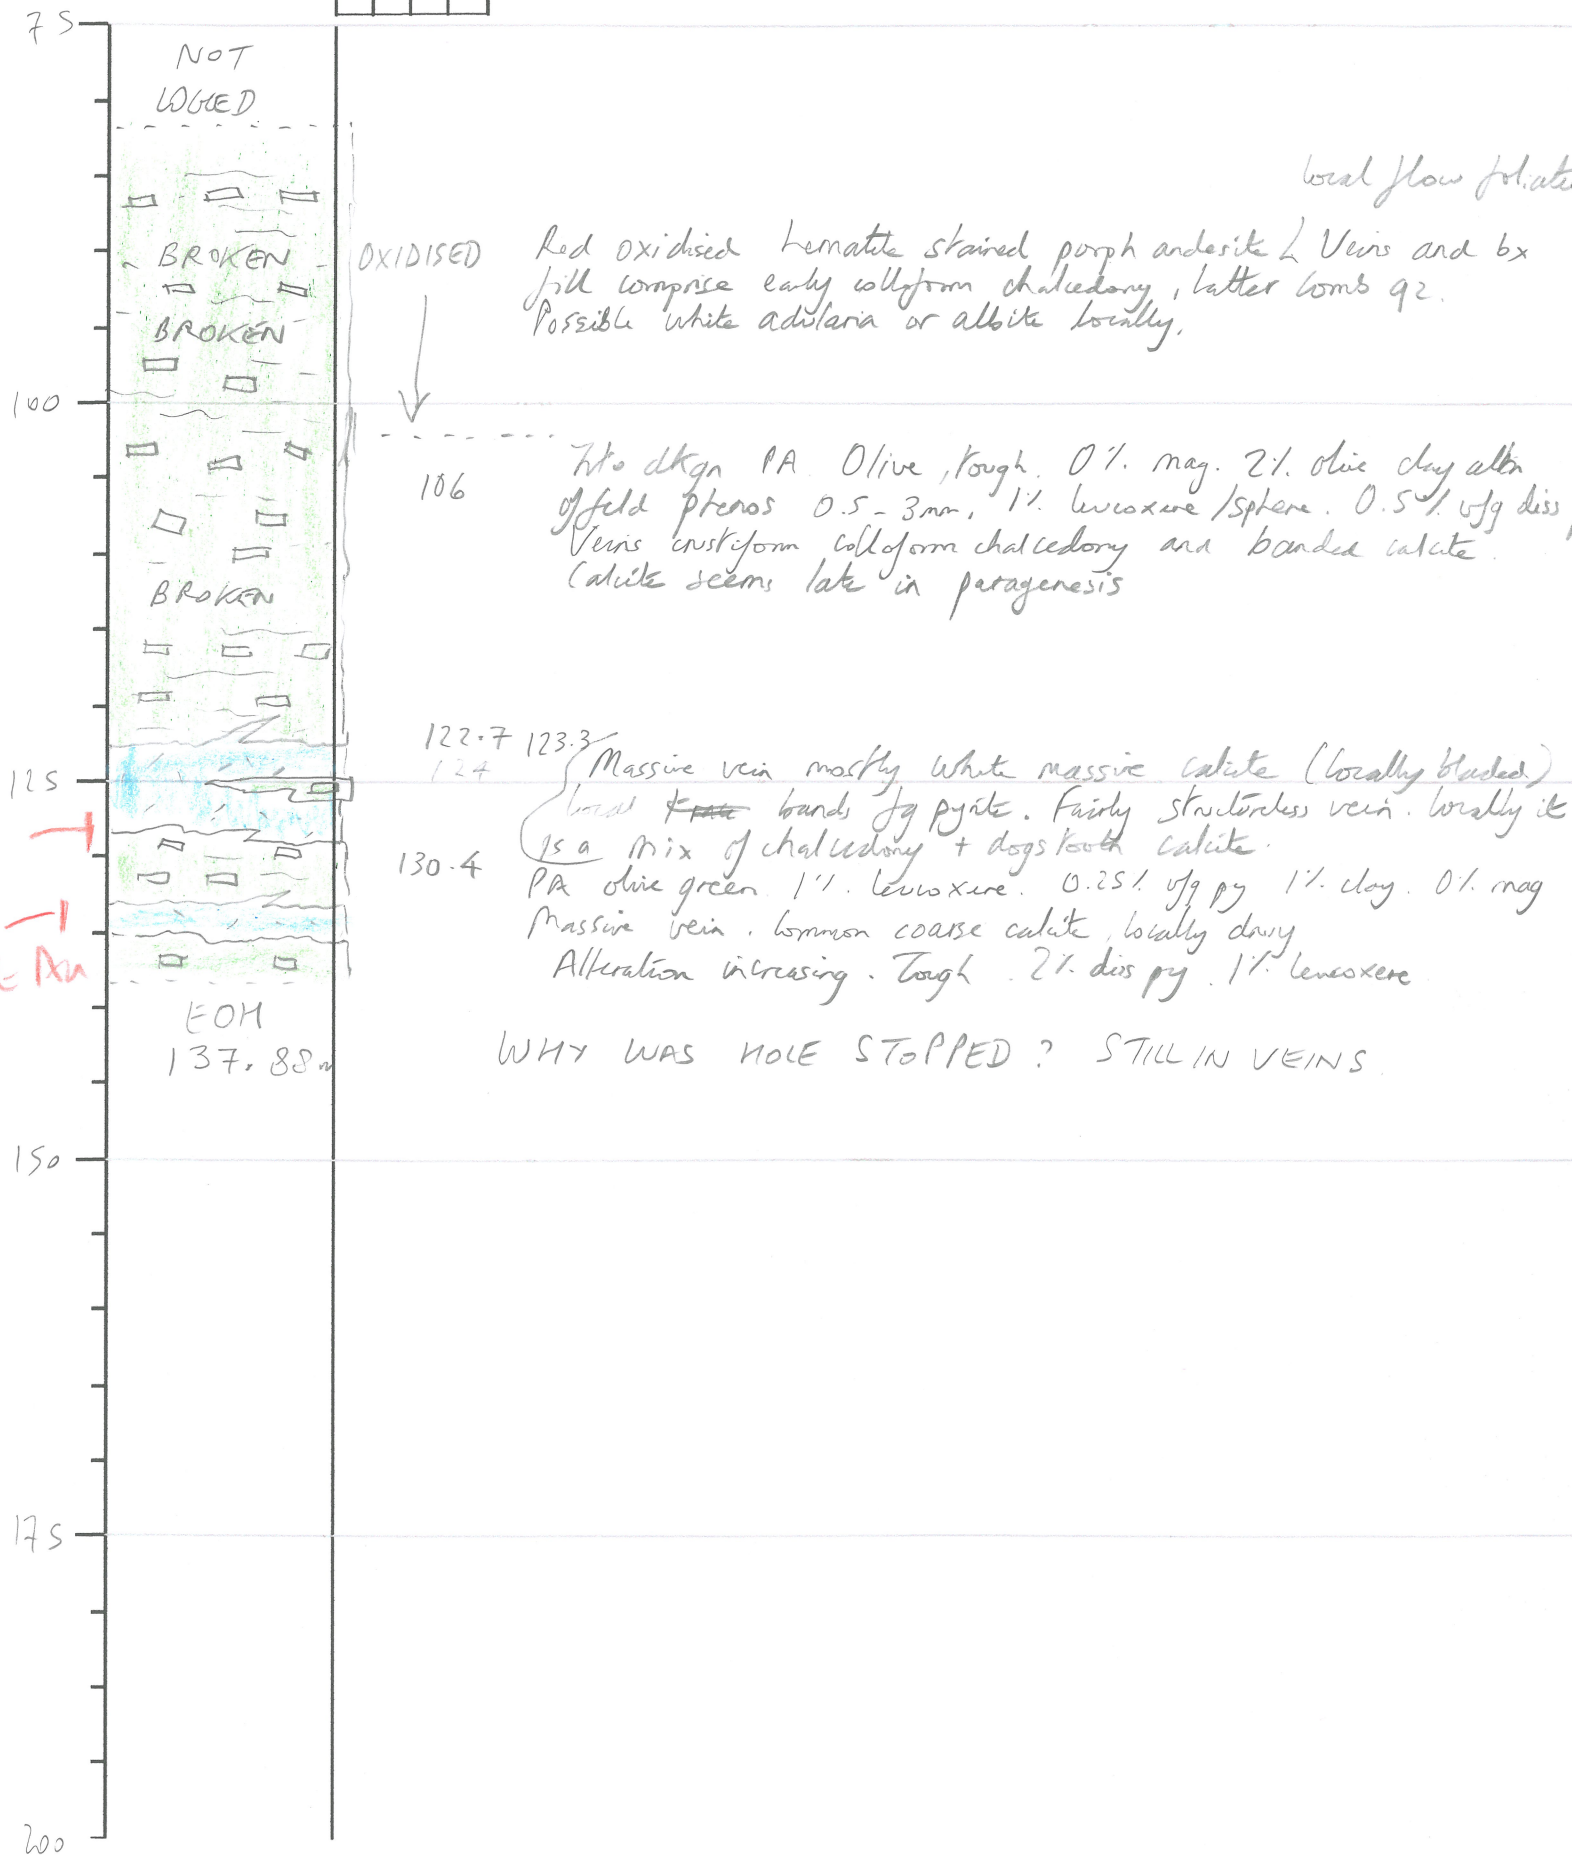 75
NOT
LOGGED
local flow foliate
BROKEN
OXIDISED
Red oxidised hematite stained porph andesite Veins and bx
fill comprise early colloform chalcedony, latter comb qz.
BROKEN
Possible white adularia or albite locally.
100
dkgn PA Olive, tough. 0% mag. 2% olive clay altn
106
of feld phenos 0.5 - 3mm, 1% leucoxene/sphene. 0.5% vfg diss
Veins crustiform colloform chalcedony and banded calcite.
BROKEN
Calcite seems late in paragenesis
122.7 123.3
124
125
Massive vein mostly white massive calcite (locally bladed)
local bands fg pyrite. Fairly structureless vein. Locally it
is a mix of chalcedony + dogstooth calcite.
130.4
PA olive green 1% leucoxene. 0.25% vfg py 1% clay. 0% mag
Massive vein. Common coarse calcite, locally drusy
Alteration increasing. Tough. 2% diss py. 1% leucoxene
EOH
137.88m
WHY WAS HOLE STOPPED? STILL IN VEINS
150
175
200